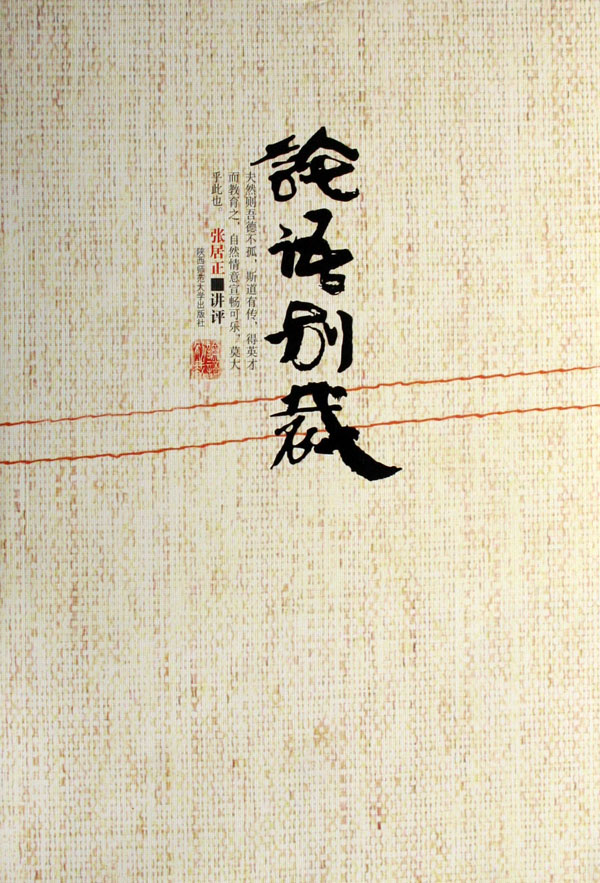 論语别裁
夫然则吾德不孤，斯道有传，得英才
而教育之，自然情意宣畅可乐，莫大
乎此也
张居正■讲评
陕西师范大学出版社